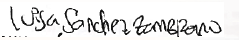 Luisa Sanchez Zambrano